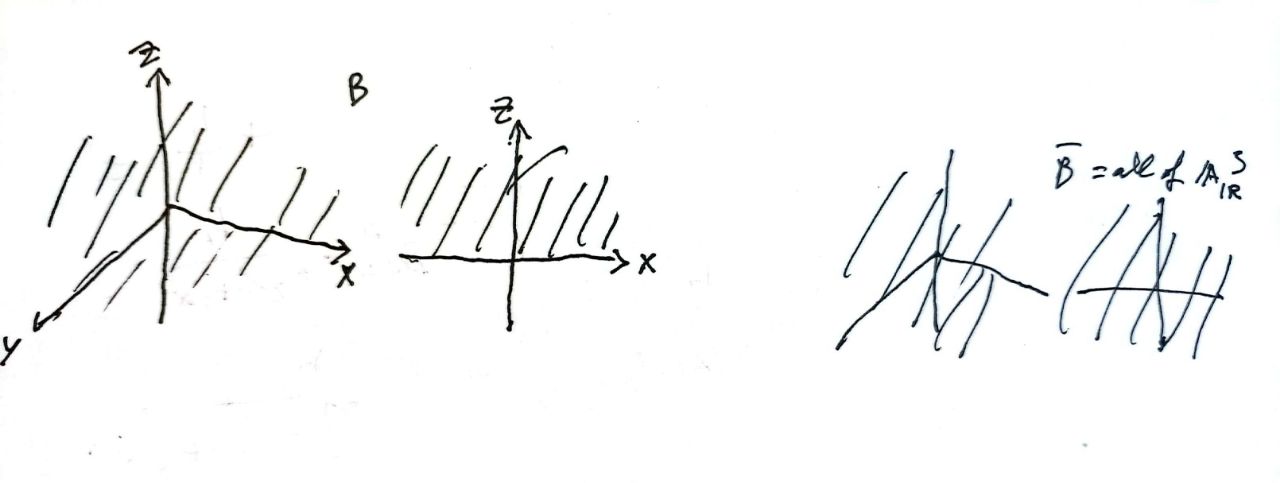 Z
B
Z
X
X
Y
B̅ = all of 𝔸³_ℝ